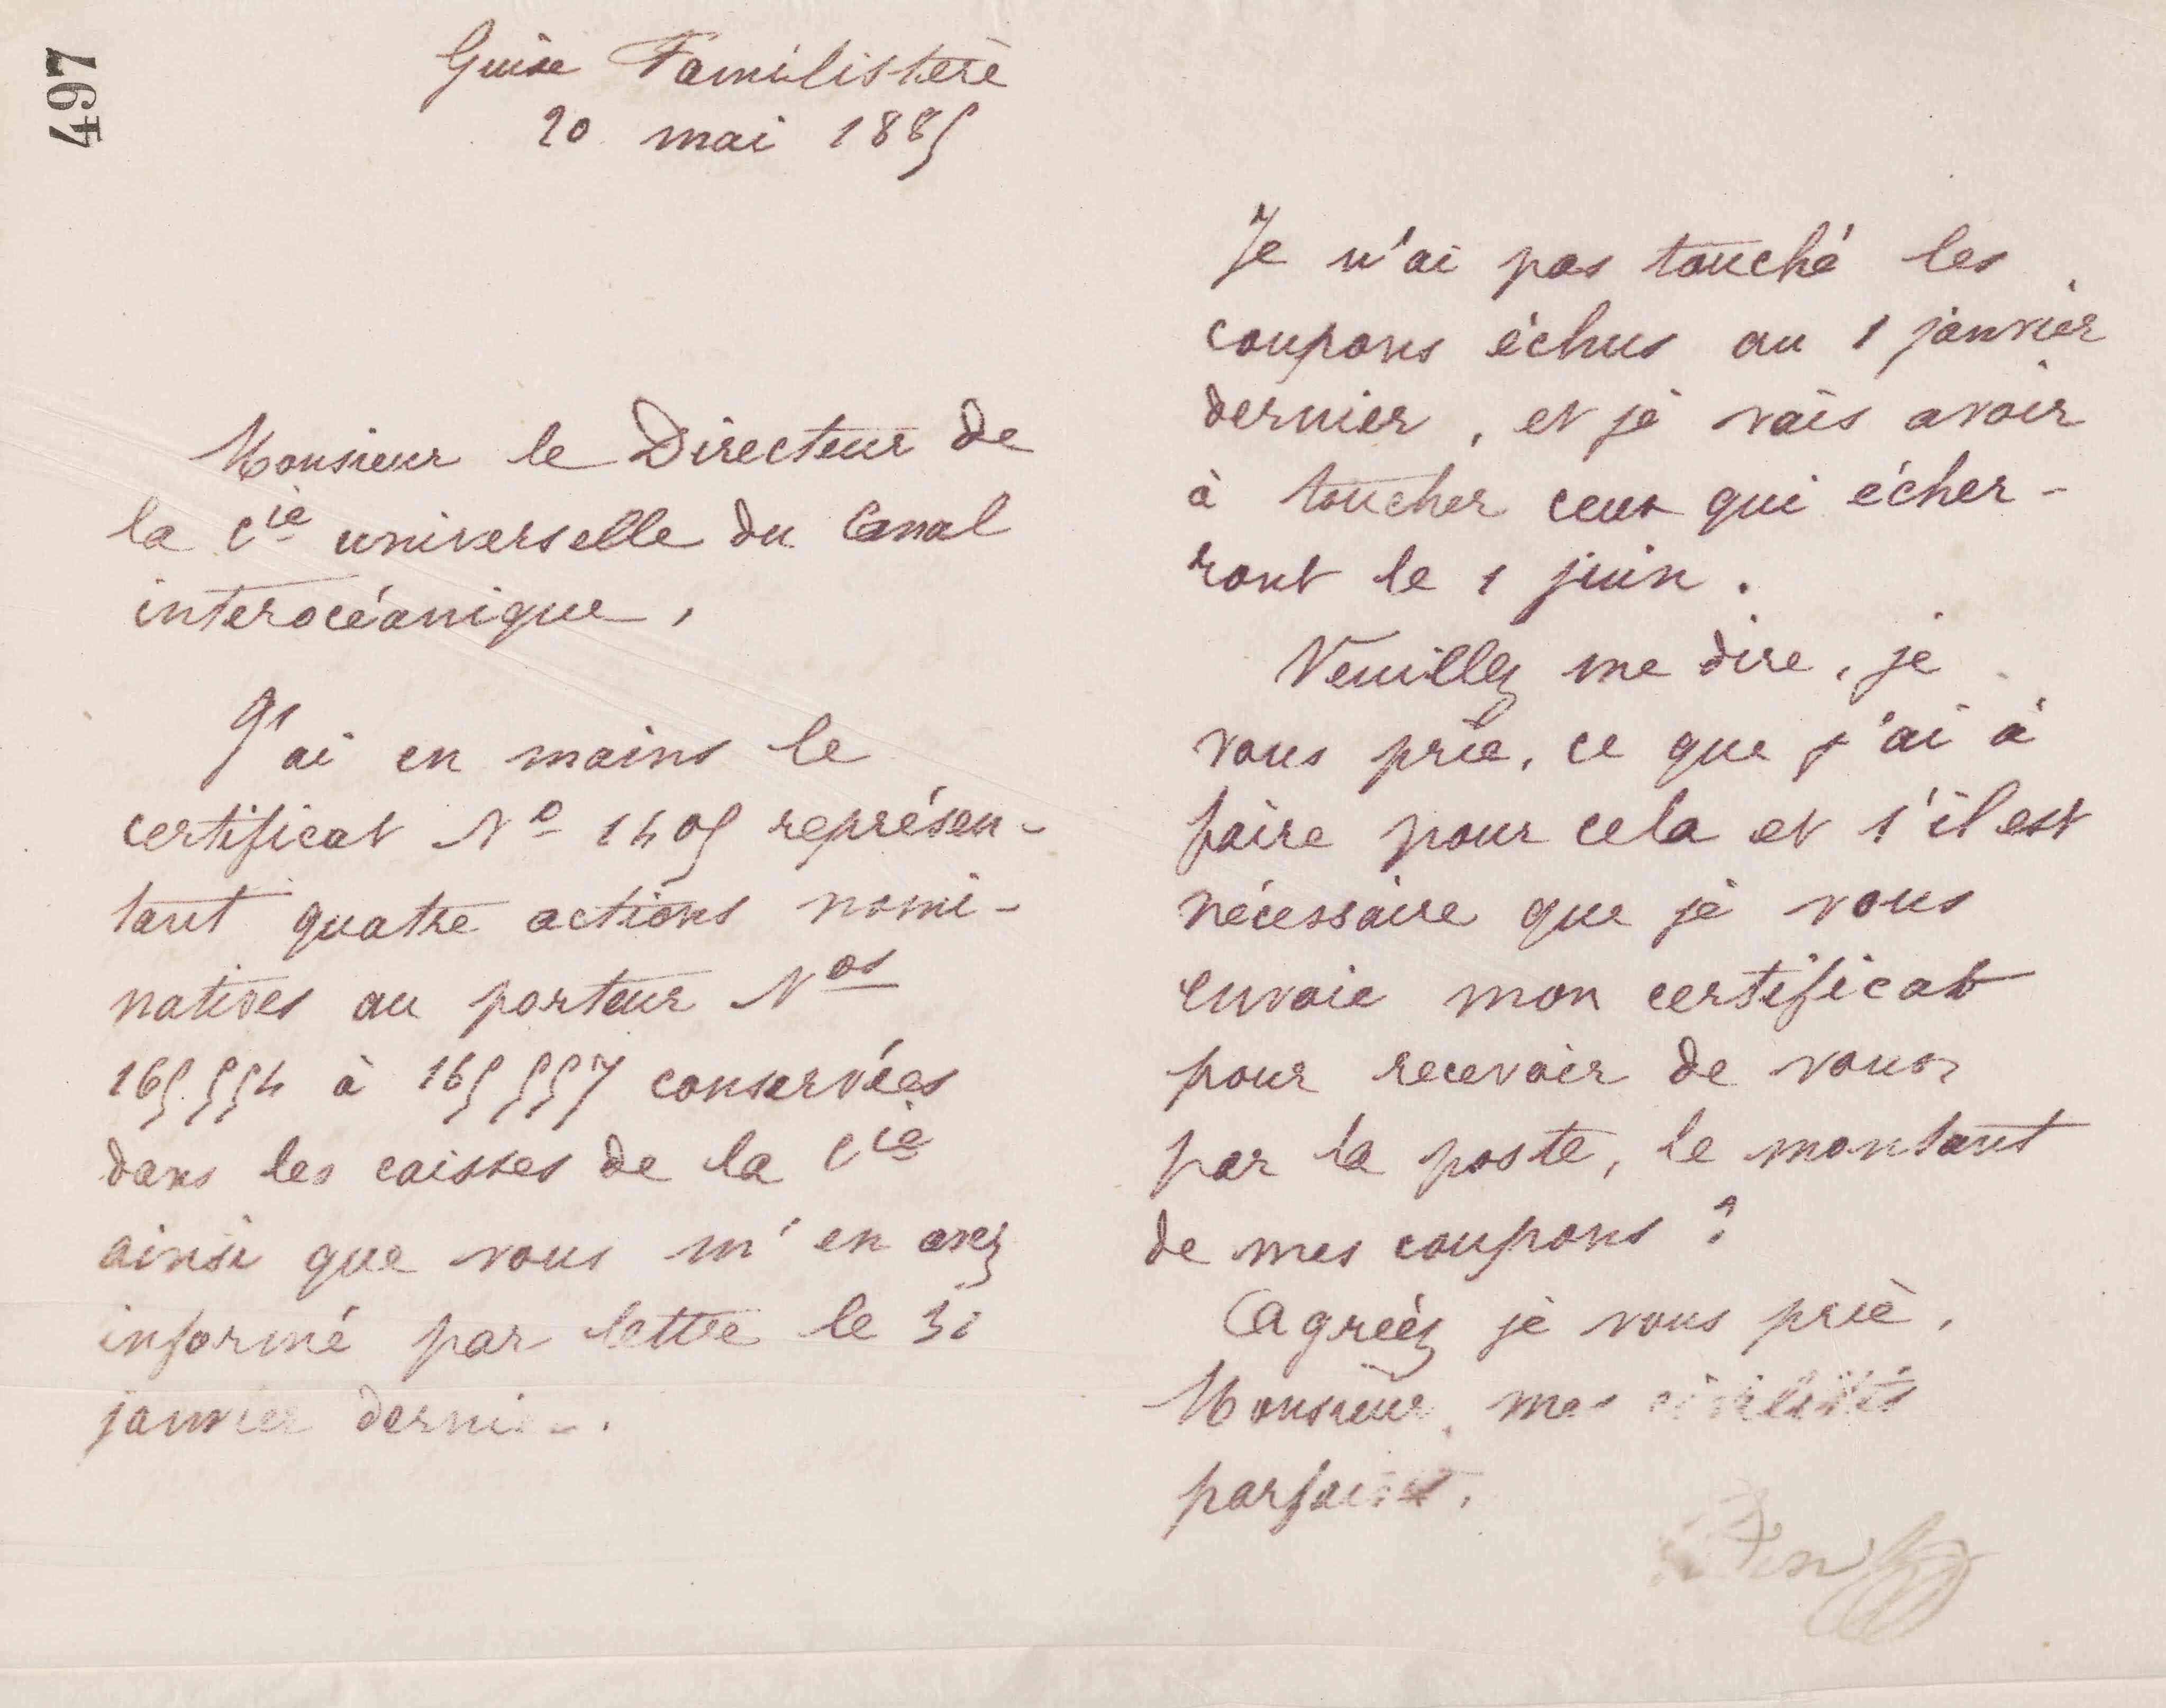 497
Guise Familistère
20 mai 1885
Monsieur le Directeur de
la Cie universelle du Canal
interocéanique,
J'ai en mains le
certificat No 1405 représen-
tant quatre actions nomi-
natives au porteur Nos
165554 à 165557 conservées
dans les caisses de la Cie
ainsi que vous m'en avez
informé par lettre le 31
janvier dernier.
Je n'ai pas touché les
coupons échus au 1 janvier
dernier, et je vais avoir
à toucher ceux qui écher-
ront le 1 juin.
Veuillez me dire, je
vous prie, ce que j'ai à
faire pour cela et s'il est
nécessaire que je vous
envoie mon certificat
pour recevoir de vous,
par la poste, le montant
de mes coupons ?
Agréez je vous prie,
Monsieur, mes civilités
parfaites.